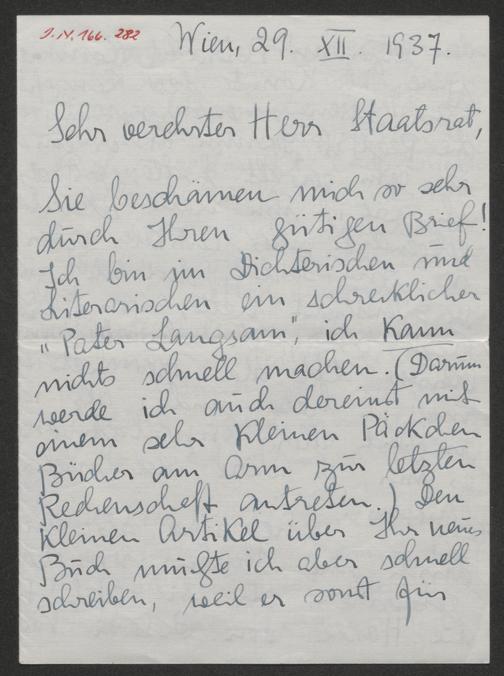 J.N. 166.282
Wien, 29. XII. 1937.
Sehr verehrter Herr Staatsrat,
Sie beschämen mich so sehr
durch Ihren gütigen Brief!
Ich bin im Dichterischen und
Literarischen ein schrecklicher
"Pater Langsam", ich kann
nichts schnell machen. (Darum
werde ich auch dereinst mit
einem sehr kleinen Päckchen
Bücher am Arm zur letzten
Rechenschaft antreten.) Den
kleinen Artikel über Ihr neues
Buch mußte ich aber schnell
schreiben, weil er sonst für